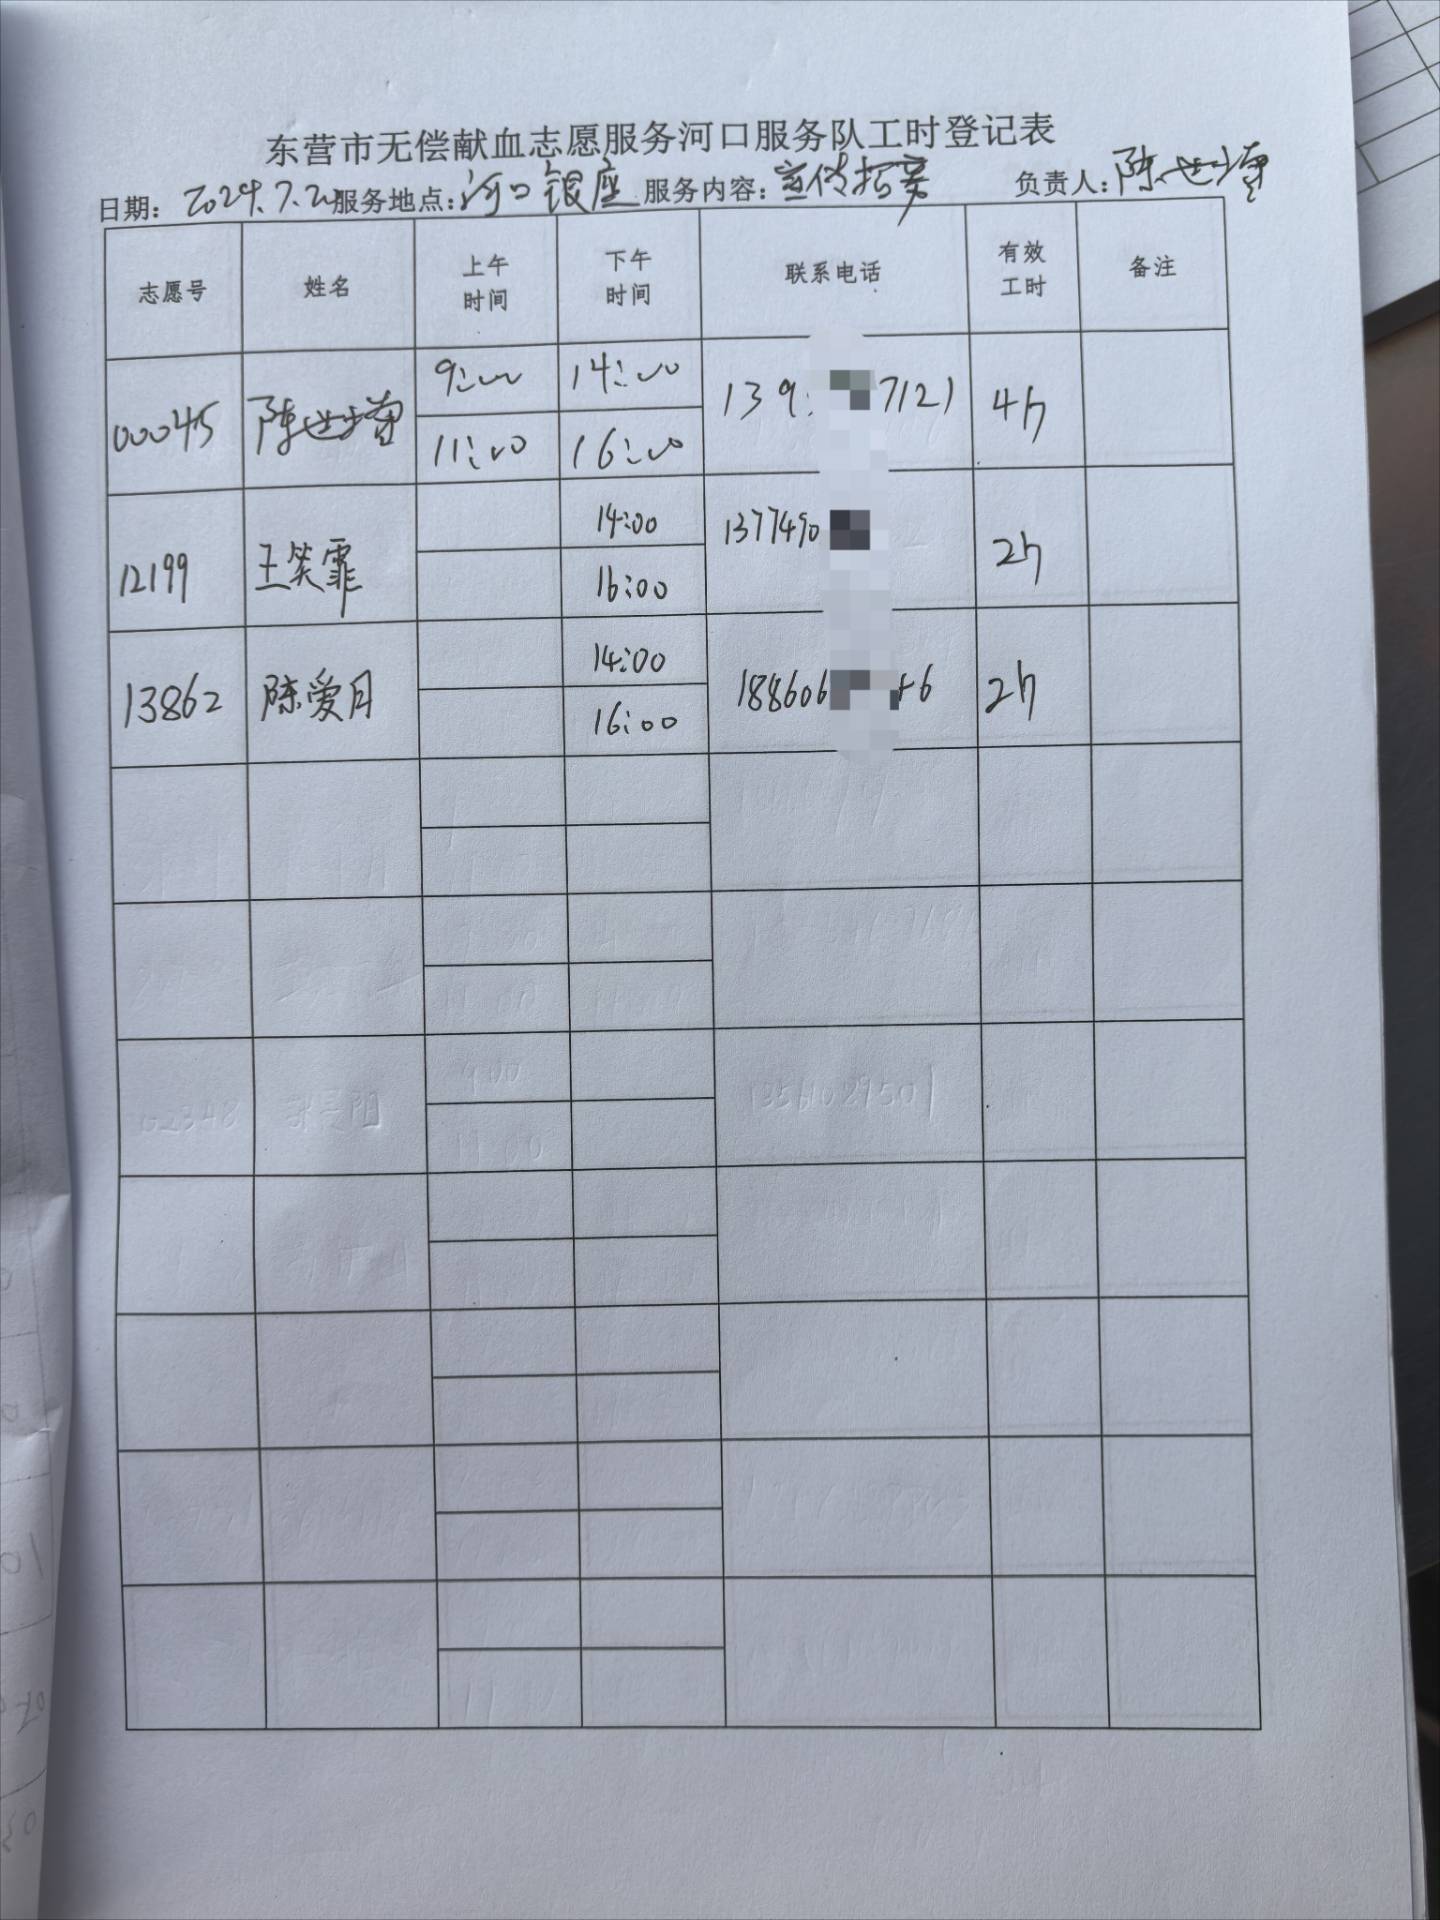 东营市无偿献血志愿服务河口服务队工时登记表
日期: 2024.7.2 服务地点: 河口银座 服务内容: 宣传招募 负责人: 陈
志愿号 姓名 上午时间 下午时间 联系电话 有效工时 备注
00045 陈 9:00 14:00 139 7121 4h
11:00 16:00
12199 王笑霏 14:00 1377490 2h
16:00
13862 陈爱月 14:00 188606 6 2h
16:00